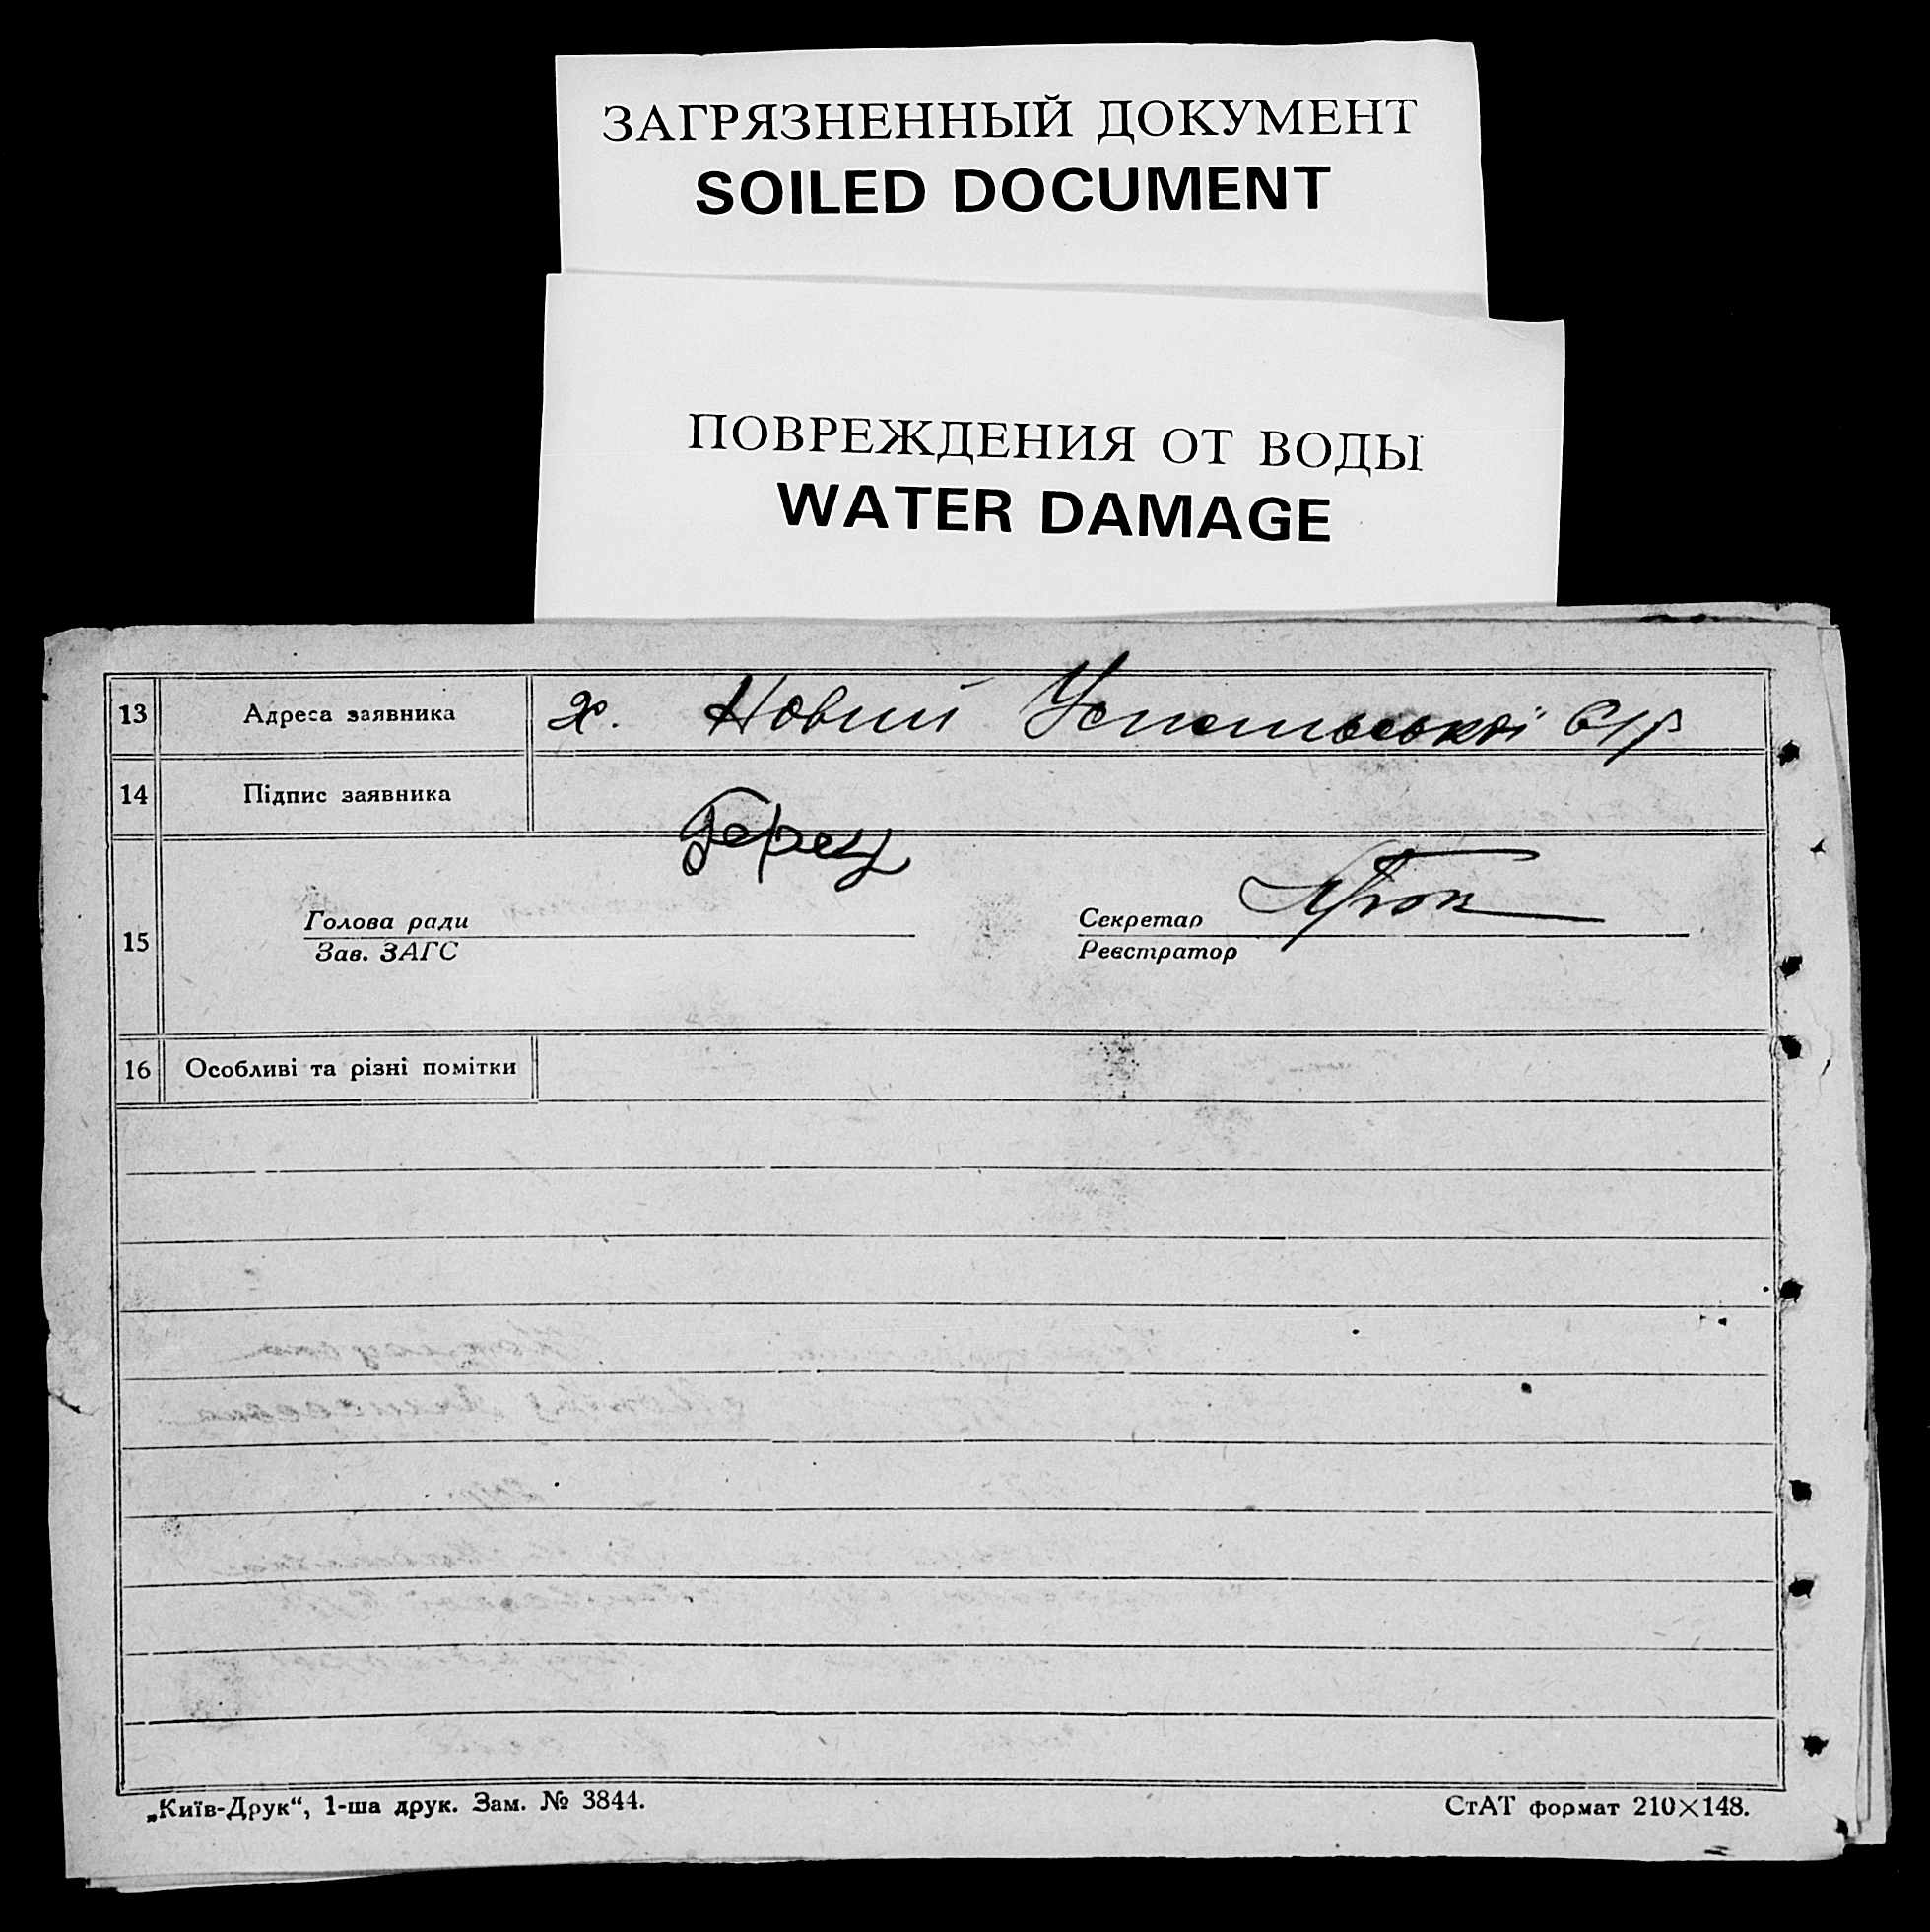 ЗАГРЯЗНЕННЫЙ ДОКУМЕНТ
SOILED DOCUMENT
ПОВРЕЖДЕНИЯ ОТ ВОДЫ
WATER DAMAGE
13 Адреса заявника х. Новий с/р
14 Підпис заявника
Голова ради Секретар
15
Зав. ЗАГС Реєстратор
16 Особливі та різні помітки
„Київ-Друк“, 1-ша друк. Зам. № 3844. СтАТ формат 210×148.